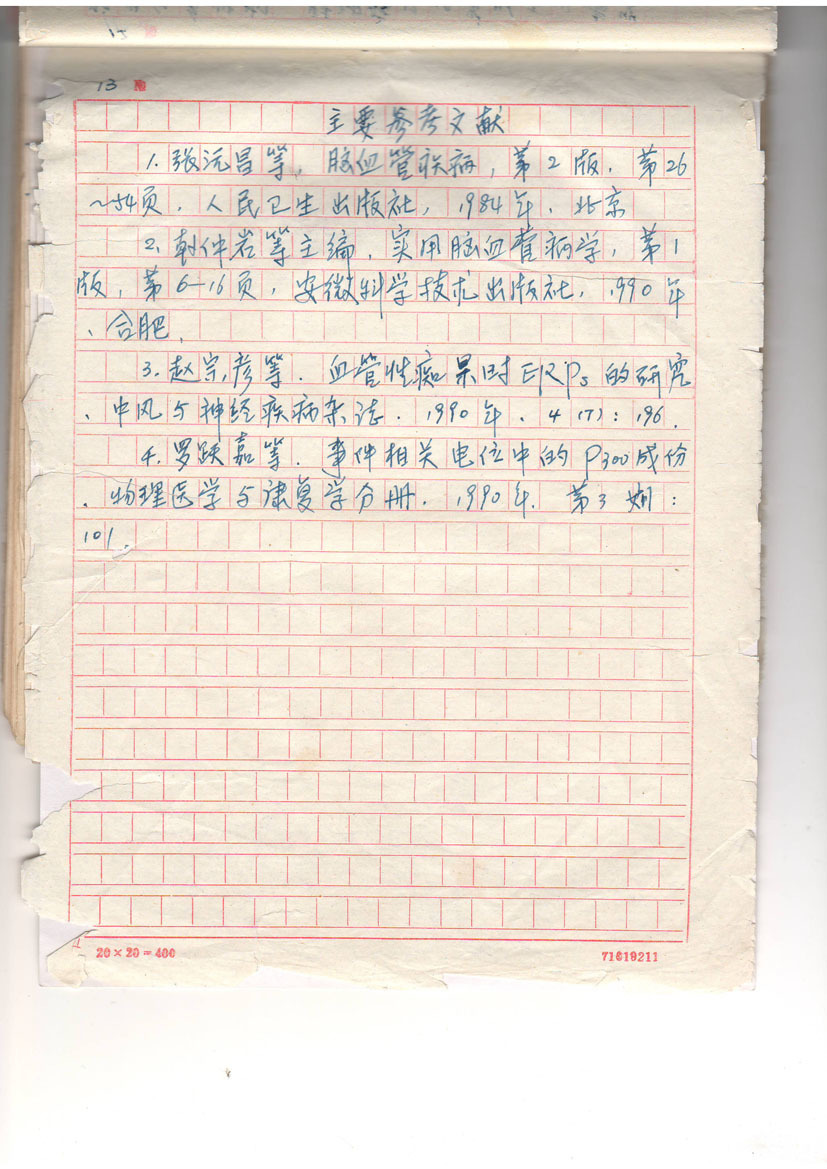 15
13
主要参考文献
1. 张沅昌等, 脑血管疾病, 第2版. 第26
~54页. 人民卫生出版社, 1984年. 北京
2. 韩仲岩等主编. 实用脑血管病学, 第1
版, 第6—16页, 安徽科学技术出版社, 1990年
、合肥.
3. 赵宗彦等. 血管性痴呆时ERPs的研究
. 中风与神经疾病杂志. 1990年. 4(7): 196.
4. 罗跃嘉等. 事件相关电位中的P300成份
. 物理医学与康复学分册. 1990年. 第3期:
101.
20×20=400
71619211